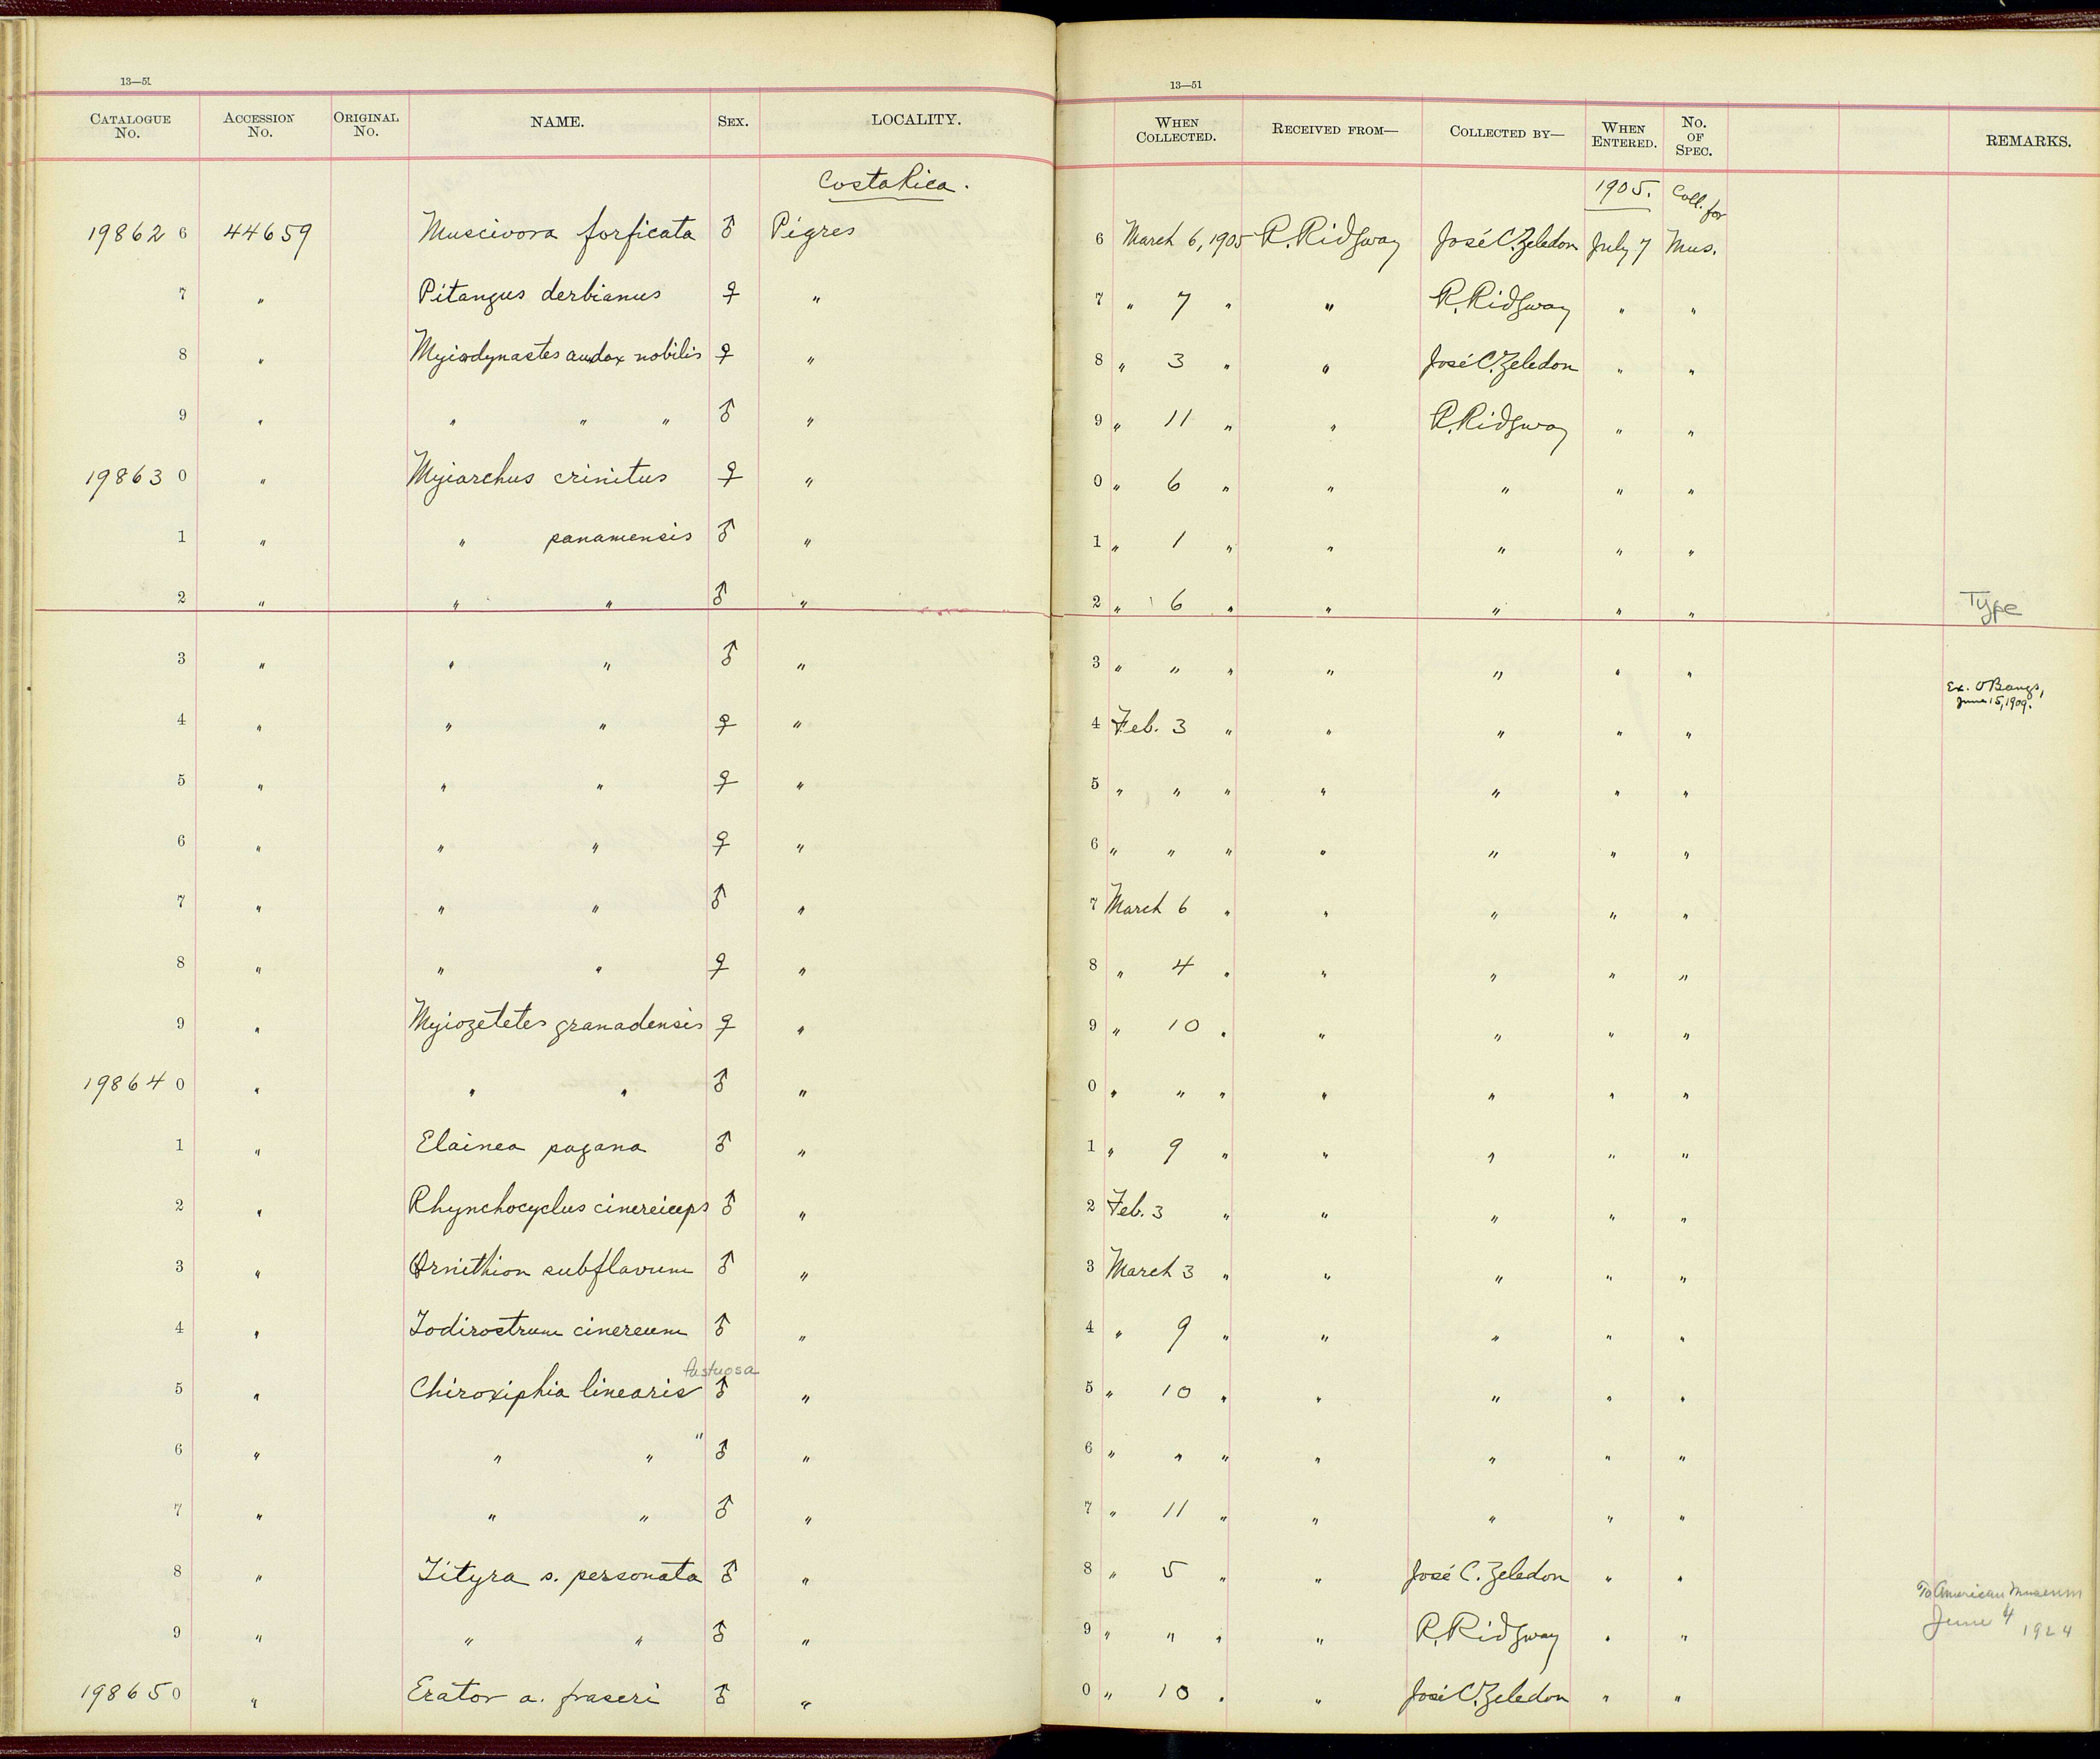 13—51 13—51
CATALOGUE No. ACCESSION No. ORIGINAL No. NAME. SEX. LOCALITY. WHEN COLLECTED. RECEIVED FROM— COLLECTED BY— WHEN ENTERED. No. OF SPEC. REMARKS.
Costa Rica. 1905. Coll. for
19862 6 44659 Muscivora forficata ♂ Pigres 6 March 6, 1905 R. Ridgway José C. Zeledon July 7 Mus.
7 " Pitangus derbianus ♀ " 7 " 7 " " R. Ridgway " "
8 " Myiodynastes audax nobilis ♀ " 8 " 3 " " José C. Zeledon " "
9 " " " " ♂ " 9 " 11 " " R. Ridgway " "
19863 0 " Myiarchus crinitus ♀ " 0 " 6 " " " " "
1 " " panamensis ♂ " 1 " 1 " " " " "
2 " " " ♂ " 2 " 6 " " " " " Type
3 " " " ♂ " 3 " " " " " " "
Ex. O Bangs,
June 15, 1909.
4 " " " ♀ " 4 Feb. 3 " " " " "
5 " " " ♀ " 5 " " " " " " "
6 " " " ♀ " 6 " " " " " " "
7 " " " ♂ " 7 March 6 " " " " "
8 " " " ♀ " 8 " 4 " " " " "
9 " Myiozetetes granadensis ♀ " 9 " 10 " " " " "
19864 0 " " " ♂ " 0 " " " " " " "
1 " Elainea pagana ♂ " 1 " 9 " " " " "
2 " Rhynchocyclus cinereiceps ♂ " 2 Feb. 3 " " " " "
3 " Ornithion subflavum ♂ " 3 March 3 " " " " "
4 " Todirostrum cinereum ♂ " 4 " 9 " " " " "
fastuosa
5 " Chiroxiphia linearis ♂ " 5 " 10 " " " " "
6 " " " " ♂ " 6 " " " " " " "
7 " " " ♂ " 7 " 11 " " " " "
8 " Tityra s. personata ♂ " 8 " 5 " " José C. Zeledon " "
To American Museum
June 4 1924
9 " " " ♂ " 9 " " " " R. Ridgway " "
19865 0 " Erator a. fraseri ♂ " 0 " 10 " " José C. Zeledon " "